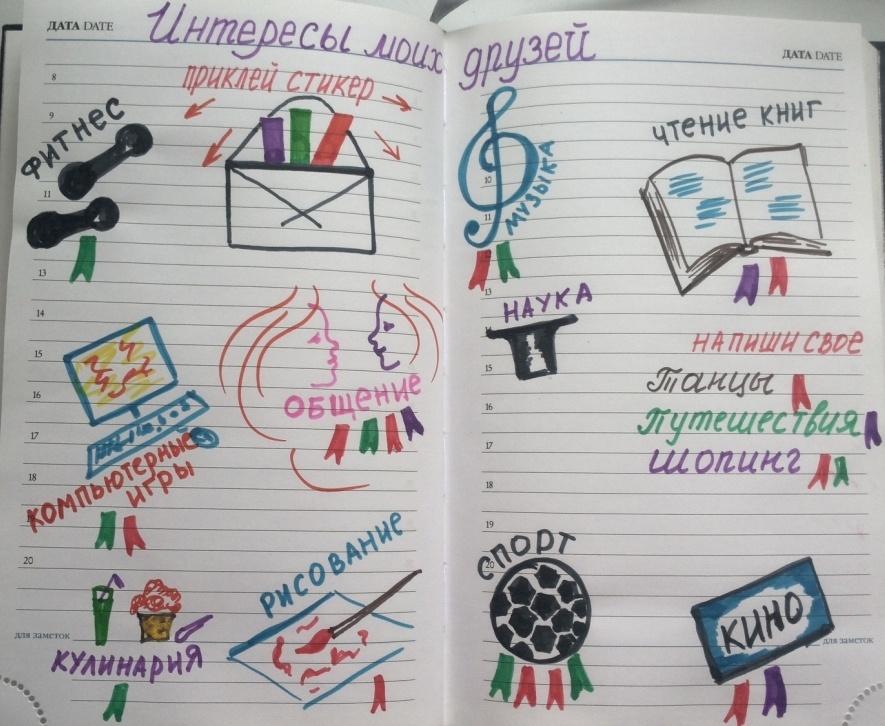 ДАТА DATE
Интересы моих друзей
ДАТА DATE
8
приклей стикер
9
ФИТНЕС
11
13
14
15
16
17
18
ОБЩЕНИЕ
КОМПЬЮТЕРНЫЕ
ИГРЫ
20
РИСОВАНИЕ
для заметок
КУЛИНАРИЯ
МУЗЫКА
ЧТЕНИЕ КНИГ
10
11
12
13
НАУКА
15
16
17
18
19
20
НАПИШИ СВОЕ
Танцы
Путешествия
Шопинг
СПОРТ
КИНО
для заметок